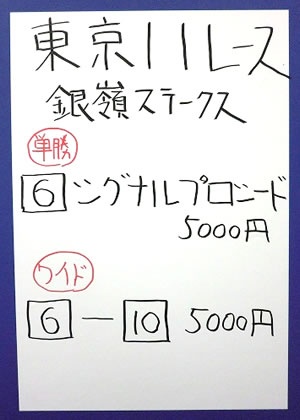 東京11レース
銀嶺ステークス
単勝
6 シグナルプロシード
5000円
ワイド
6 ー 10 5000円